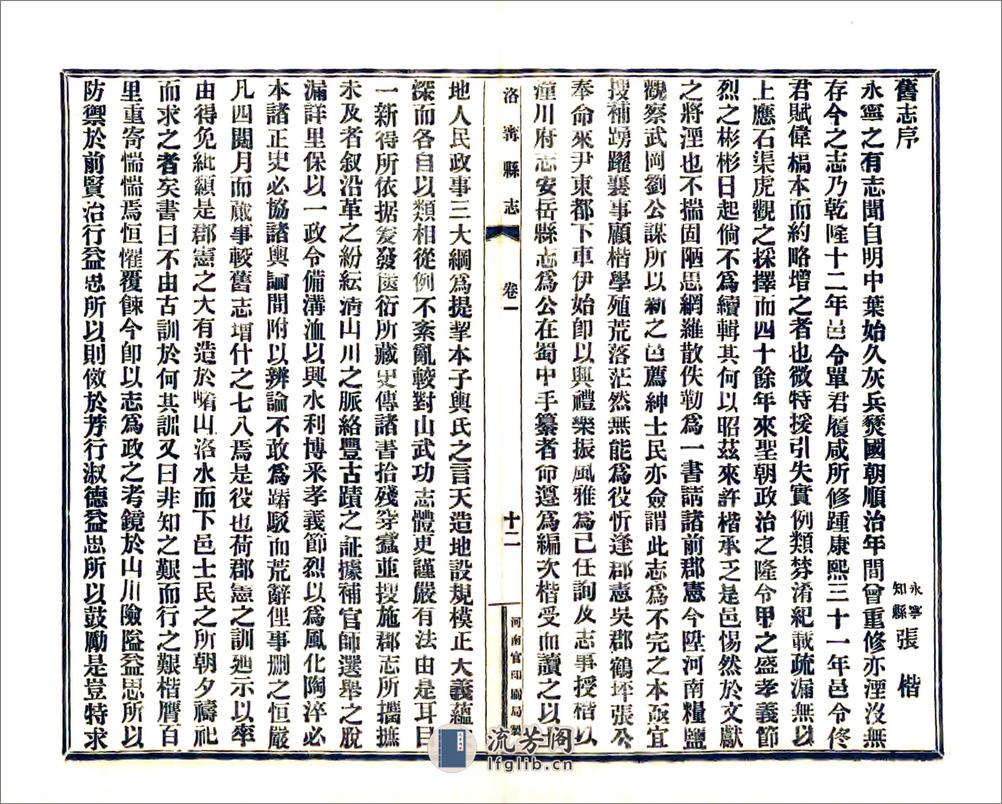 舊志序
永寧知縣張楷
永寧之有志聞自明中葉始久灰兵燹國朝順治年間曾重修亦湮沒無
存今之志乃乾隆十二年邑令單君履咸所修踵康熙三十一年邑令佟
君賦偉槁本而約略增之者也微特援引失實例類棼淆紀載疏漏無以
上應石渠虎觀之採擇而四十餘年來聖朝政治之隆令甲之盛孝義節
烈之彬彬日起倘不為續輯其何以昭茲來許楷承乏是邑惕然於文獻
之將湮也不揣固陋思網羅散佚勒為一書請諸前郡憲今陞河南糧鹽
觀察武岡劉公謀所以新之邑薦紳士民亦僉謂此志為不完之本亟宜
搜補踴躍襄事顧楷學殖荒落茫然無能為役忻逢郡憲吳郡鶴坪張公
奉命來尹東都下車伊始卽以興禮樂振風雅為己任詢及志事授楷以
潼川府志安岳縣志為公在蜀中手纂者命遵為編次楷受而讀之以
洛寧縣志
卷一
十二
河南官印刷局製
地人民政事三大綱為提挈本子輿氏之言天造地設規模正大義蘊
深而各自以類相從例不紊亂較對山武功志體更謹嚴有法由是耳目
一新得所依据爰發篋衍所藏史傳諸書拾殘穿蠹並搜施郡志所攟摭
未及者叙沿革之紛紜淸山川之脈絡豐古蹟之証據補官師選舉之脫
漏詳里保以一政令備溝洫以興水利博釆孝義節烈以為風化陶淬必
本諸正史必協諸輿論間附以辨論不敢為踳駁而荒辭俚事删之恒嚴
凡四閱月而蕆事較舊志增什之七八焉是役也荷郡憲之訓廸示以率
由得免紕纇是郡憲之大有造於崤山洛水而下邑士民之所朝夕禱祀
而求之者矣書曰不由古訓於何其訓又曰非知之艱而行之艱楷膺百
里重寄惴惴焉恒懼覆餗今卽以志為政之考鏡於山川險隘益思所以
防禦於前賢治行益思所以則傚於芳行淑德益思所以鼓勵是豈特求
流芳閣
lfglib.cn